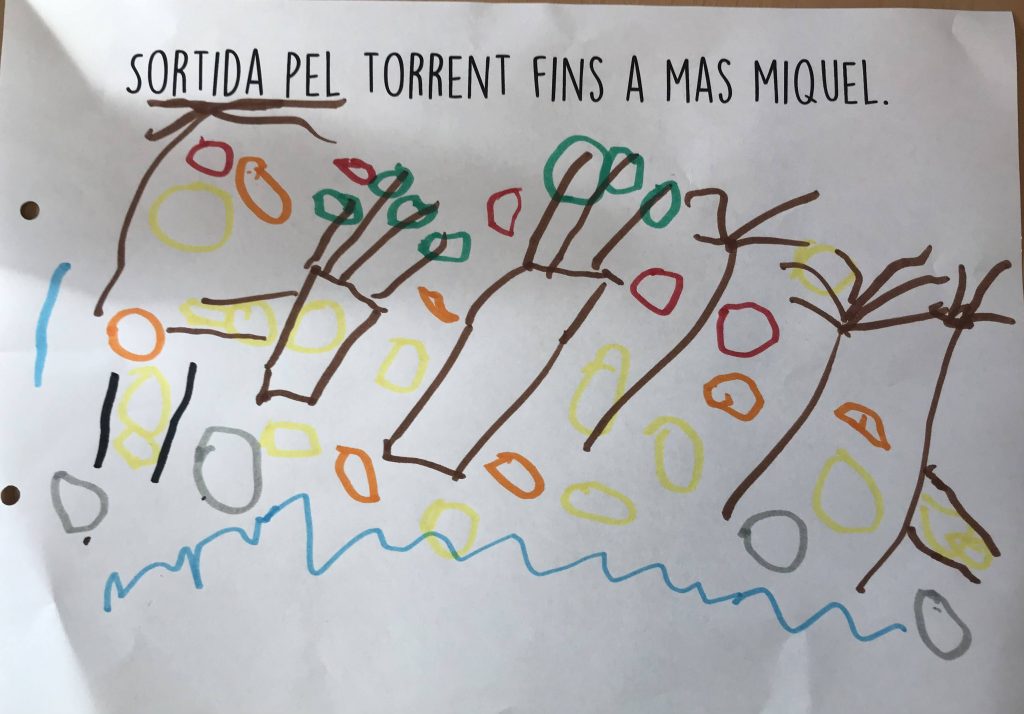 SORTIDA PEL TORRENT FINS A MAS MIQUEL.